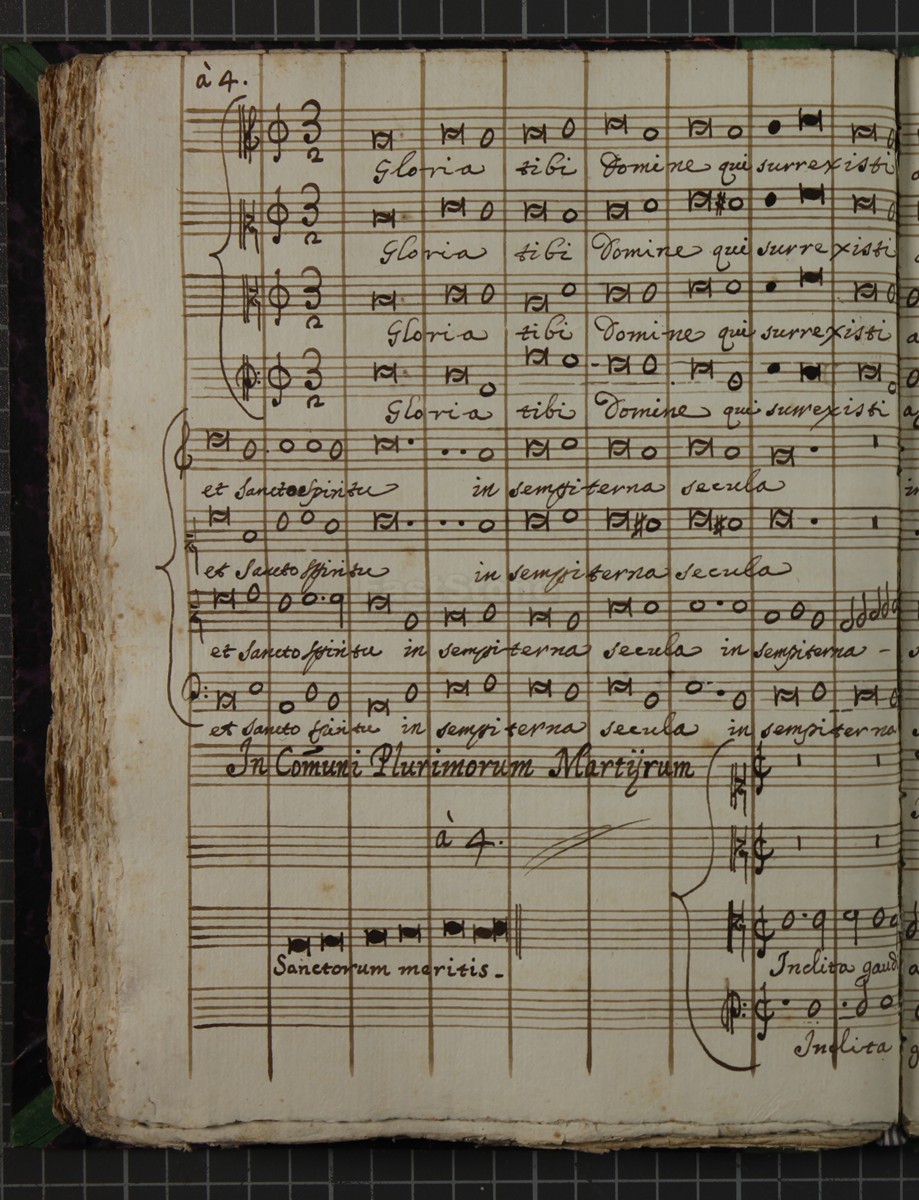 à 4.
Gloria tibi Domine qui surrexisti
Gloria tibi Domine qui surrexisti
Gloria tibi Domine qui surrexisti
Gloria tibi Domine qui surrexisti
et Sancto Spiritu in sempiterna secula
et Sancto Spiritu in sempiterna secula
et Sancto Spiritu in sempiterna secula in sempiterna -
et Sancto Spiritu in sempiterna secula in sempiterna
In Com̄uni Plurimorum Martÿrum
à 4.
Sanctorum meritis -
Inclita gaud
Inclita